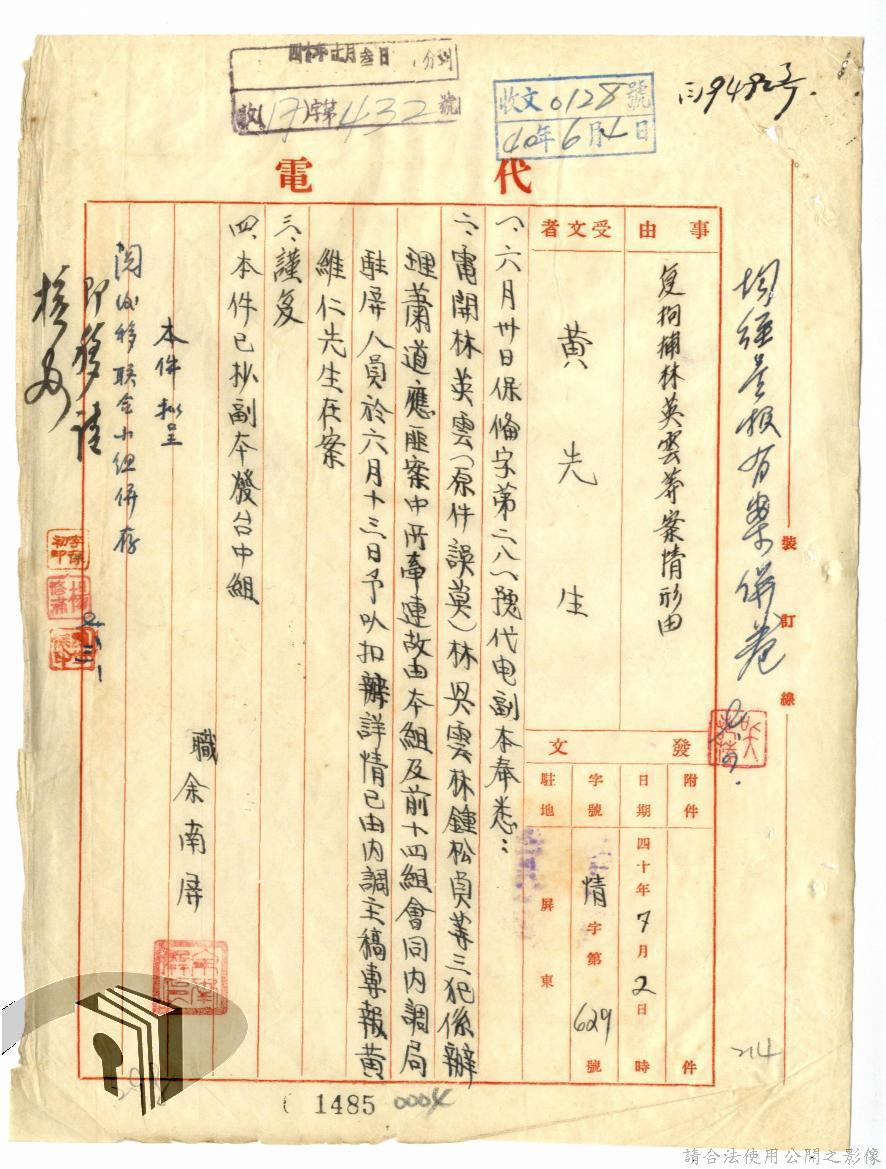 四十年七月叁日
收(17)字第1432號
收文0128號
40年6月4日
代電
事由
复拘捕林英雲等案情形由
受文者
黃先生
發文
附件
件
日期
四十年7月2日
時
字號
情字第629號
駐地
屏東
一、六月卅日保偹字第二八一號代电副本奉悉：
二、電開林英雲（原件誤莫）林吳雲林鍾松貞等三犯係辦
理蕭道應匪案中所牽連故由本組及前十四組會同內調局
駐屏人員於六月十三日予以扣辦詳情已由內調主稿專報黃
維仁先生在案
三、謹复
四、本件已抄副本發台中組
職余南屏
本件擬呈
閱後移联合小组併存
即移請
核办
均經呈報有案併卷
裝訂線
214
1485
0004
請合法使用公開之影像